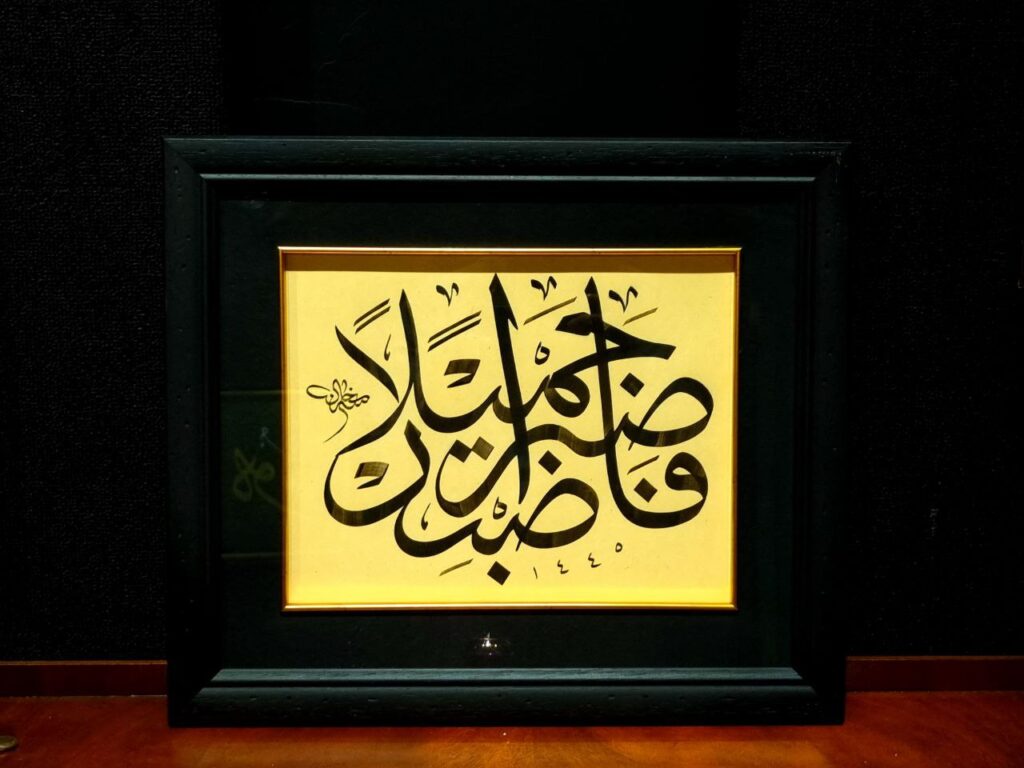 فَاصْبِرْ صَبْرًا جَمِيلًا
١٤٤٥